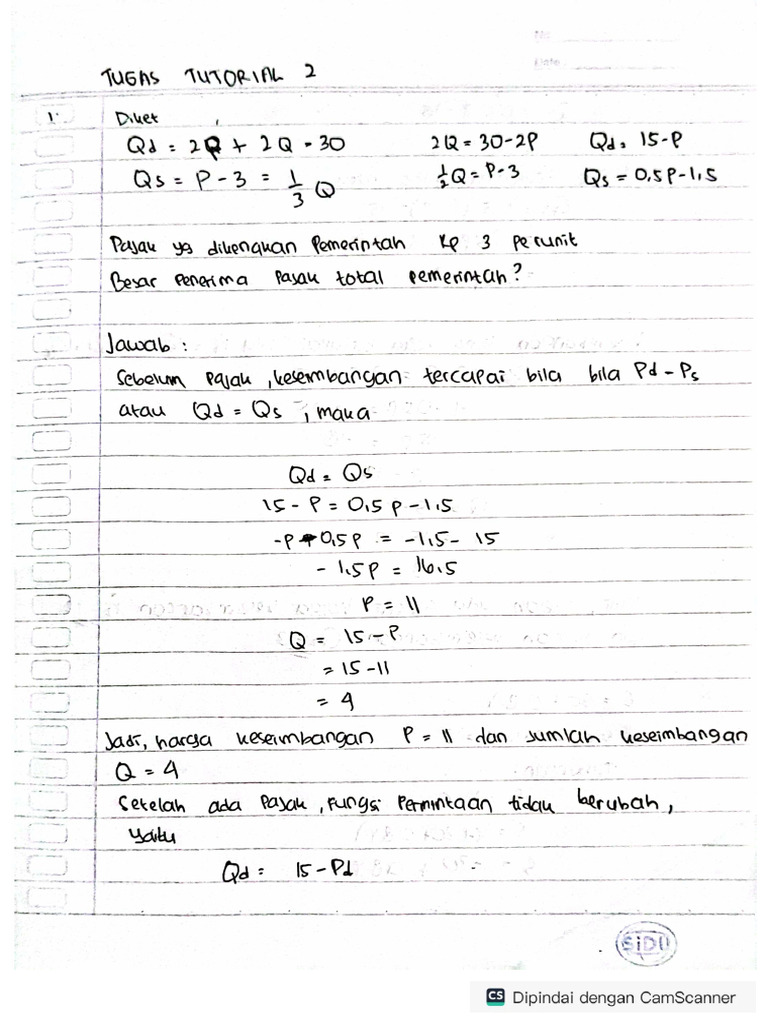 No
Date
TUGAS TUTORIAL 2
1. Diket,
Qd = 2P + 2Q = 30 2Q = 30-2P Qd = 15-P
Qs = P - 3 = 1/3 Q 1/2Q = P-3 Qs = 0,5P-1,5
Pajak yg dikenakan Pemerintah Rp 3 Perunit
Besar Penerima Pajak total pemerintah?
Jawab :
Sebelum Pajak, kesembangan tercapai bila bila Pd - Ps
atau Qd = Qs, maka
Qd = Qs
15 - P = 0,5 P - 1,5
-P + 0,5 P = -1,5 - 15
- 1,5 P = 16,5
P = 11
Q = 15 - P
= 15 - 11
= 4
Jadi, harga keseimbangan P = 11 dan jumlah keseimbangan
Q = 4
Setelah ada Pajak, Fungsi Permintaan tidak berubah,
yaitu
Qd = 15 - Pd
SiDU
CS Dipindai dengan CamScanner